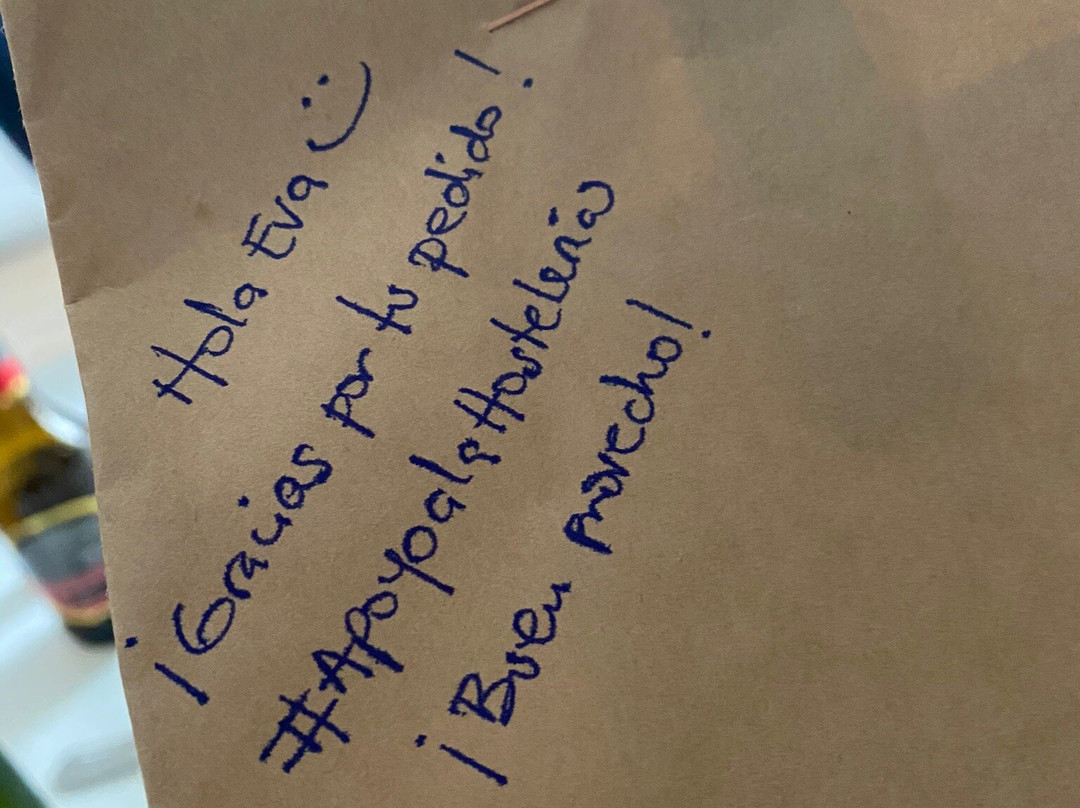 Hola Eva :)
¡Gracias por tu pedido!
#ApoyoalaHostelería
¡Buen provecho!